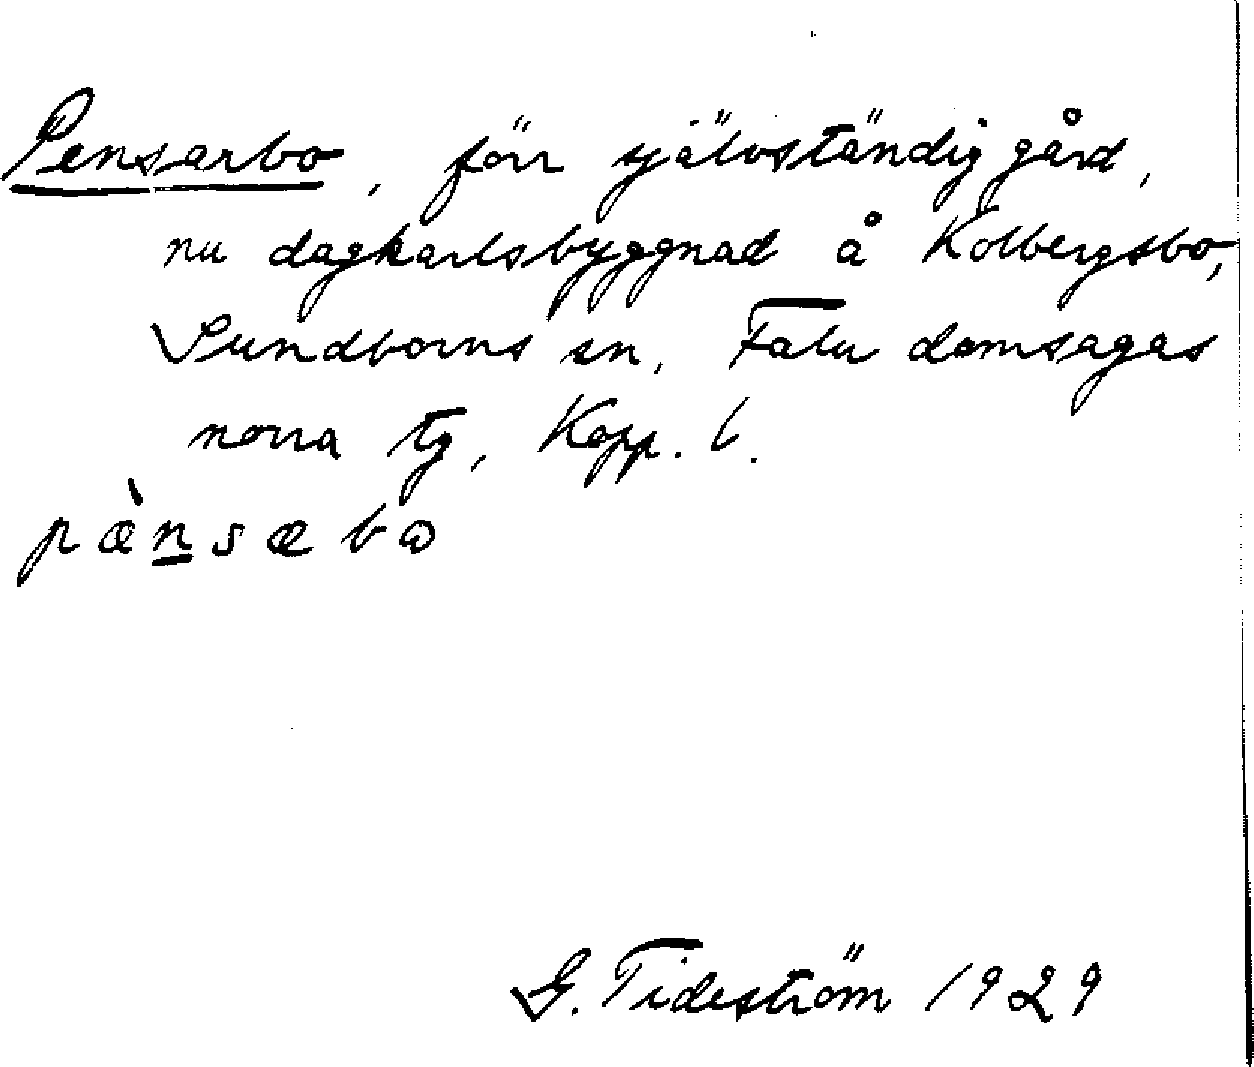 Pensarbo, förr självständig gård,
nu dagkarlsbyggnad å Kolbergsbo,
Sundborns sn, Falu domsagas
norra tg, Kopp. l.
pæ̀n̲sæbɷ
G. Tideström 1929